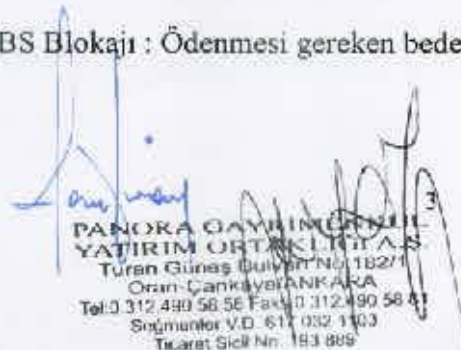 BS Blokajı : Ödenmesi gereken bede
3
PANORA GAYRİMENKUL
YATIRIM ORTAKLIĞI A.Ş.
Turan Güneş Bulvarı No:182/1
Oran-Çankaya/ANKARA
Tel:0.312.490 56 56 Faks:0.312.490 56 81
Seğmenler V.D. 617 032 1103
Ticaret Sicil No. 193 889